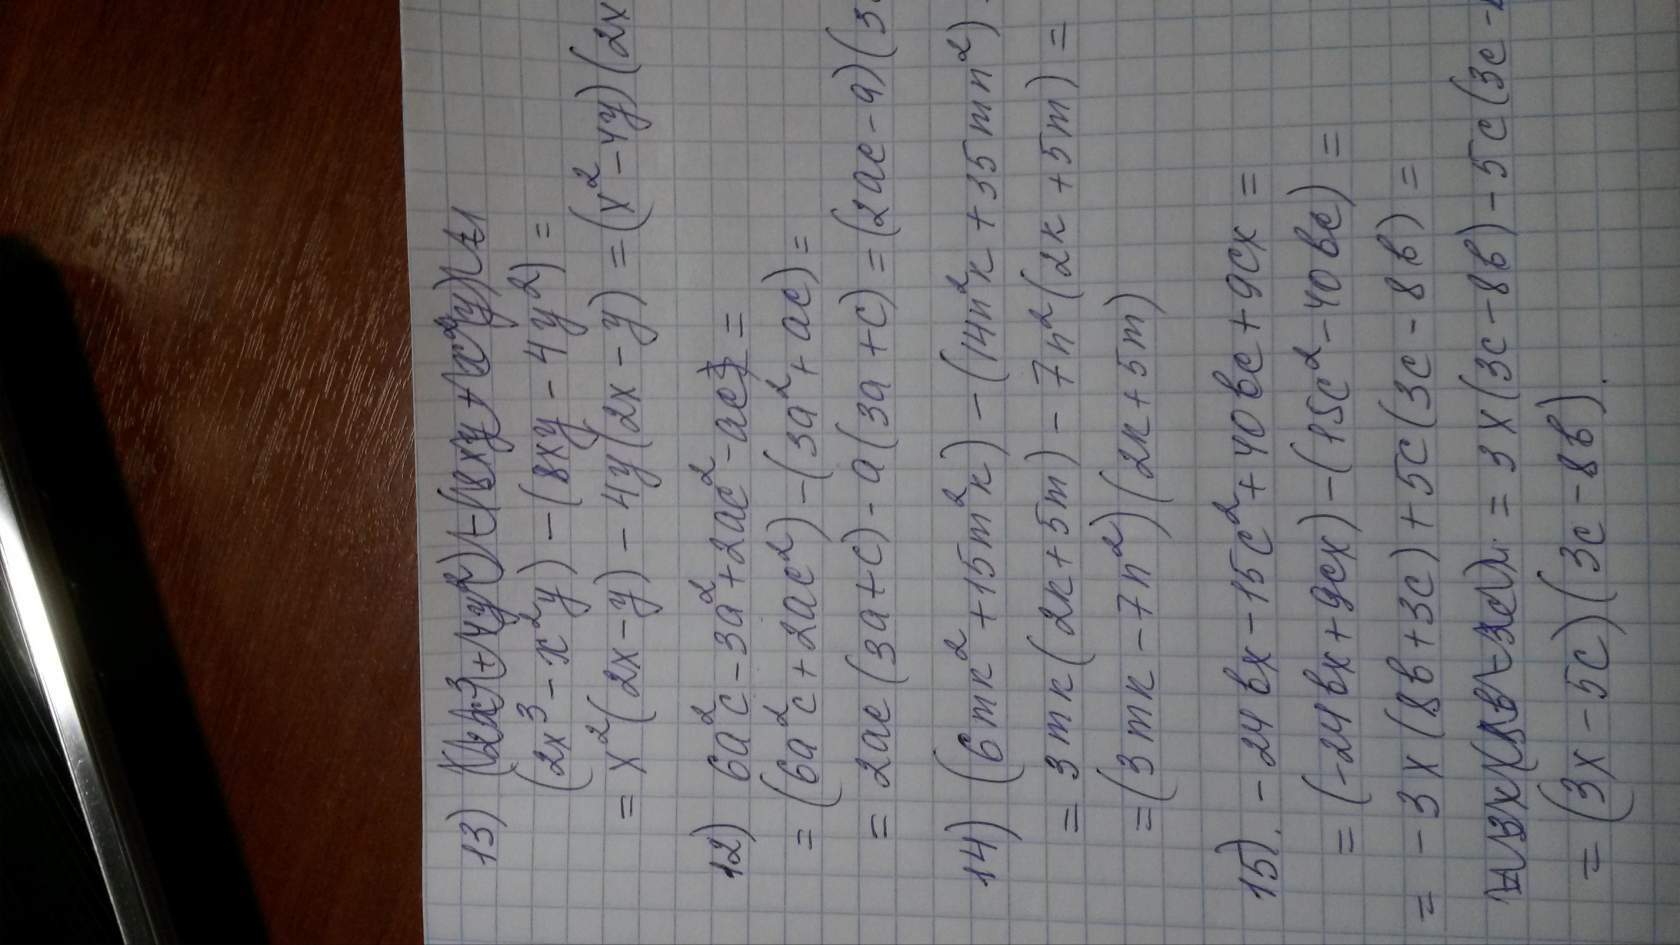 13)
(2x³ - x²y) - (8xy - 4y²) =
= x²(2x - y) - 4y(2x - y) = (x² - 4y)(2x
12) 6a²c - 3a² + 2ac² - ac =
= (6a²c + 2ac²) - (3a² + ac) =
= 2ac(3a + c) - a(3a + c) = (2ac - a)(3
14) (6mk² + 15m²k) - (14n²k + 35mn²)
= 3mk(2k + 5m) - 7n²(2k + 5m) =
= (3mk - 7n²)(2k + 5m)
15) - 24вx - 15c² + 40вc + 9cx =
= (-24вx + 9cx) - (15c² - 40вc) =
= - 3x(8в + 3c) + 5c(3c - 8в) =
= 3x(3c - 8в) - 5c(3c -
= (3x - 5c)(3c - 8в).